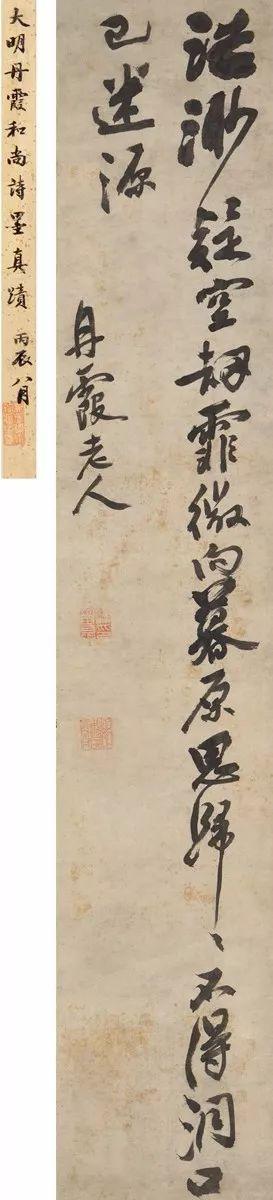 浩渺疑空劫霏微向暮原思歸〻不得洞口
已迷源
丹霞老人
大明丹霞和尚詩墨真蹟 丙辰八月